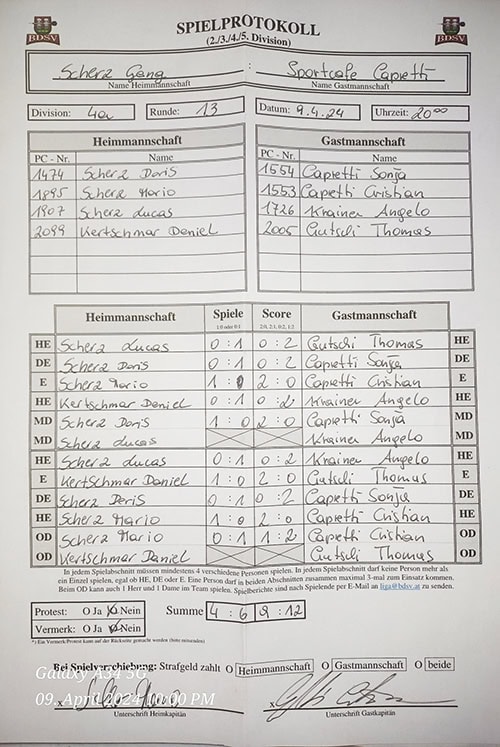 SPIELPROTOKOLL
(2./3./4./5. Division)
BDSV BDSV
Scherz Gang : Sportcafe Capietti
Name Heimmannschaft Name Gastmannschaft
Division: 4a Runde: 13 Datum: 9.4.24 Uhrzeit: 20⁰⁰
Heimmannschaft Gastmannschaft
PC - Nr. Name PC - Nr. Name
1474 Scherz Doris 1554 Capietti Sonja
1895 Scherz Mario 1553 Capietti Cristian
1907 Scherz Lucas 1726 Krainer Angelo
2099 Kertschmar Daniel 2005 Gutschi Thomas
Heimmannschaft Spiele Score Gastmannschaft
1:0 oder 0:1 2:0, 2:1, 0:2, 1:2
HE Scherz Lucas 0:1 0:2 Gutschi Thomas HE
DE Scherz Doris 0:1 0:2 Capietti Sonja DE
E Scherz Mario 1:0 2:0 Capietti Cristian E
HE Kertschmar Daniel 0:1 0:2 Krainer Angelo HE
MD Scherz Doris 1:0 2:0 Capietti Sonja MD
MD Scherz Lucas Krainer Angelo MD
HE Scherz Lucas 0:1 0:2 Krainer Angelo HE
E Kertschmar Daniel 1:0 2:0 Gutschi Thomas E
DE Scherz Doris 0:1 0:2 Capietti Sonja DE
HE Scherz Mario 1:0 2:0 Capietti Cristian HE
OD Scherz Mario 0:1 1:2 Capietti Cristian OD
OD Kertschmar Daniel Gutschi Thomas OD
In jedem Spielabschnitt müssen mindestens 4 verschiedene Personen spielen. In jedem Spielabschnitt darf keine Person mehr als
ein Einzel spielen, egal ob HE, DE oder E. Eine Person darf in beiden Abschnitten zusammen maximal 3-mal zum Einsatz kommen.
Beim OD kann auch 1 Herr und 1 Dame im Team spielen. Spielberichte sind nach Spielende per E-Mail an liga@bdsv.at zu senden.
Protest: O Ja O Nein Summe 4 : 6 9 : 12
Vermerk: O Ja O Nein
*) Ein Vermerk/Protest kann auf der Rückseite gemacht werden (bitte ankreuzen)
Bei Spielverschiebung: Strafgeld zahlt O Heimmannschaft O Gastmannschaft O beide
Galaxy A34 5G
09. April 2024 10:00 PM
x x
Unterschrift Heimkapitän Unterschrift Gastkapitän